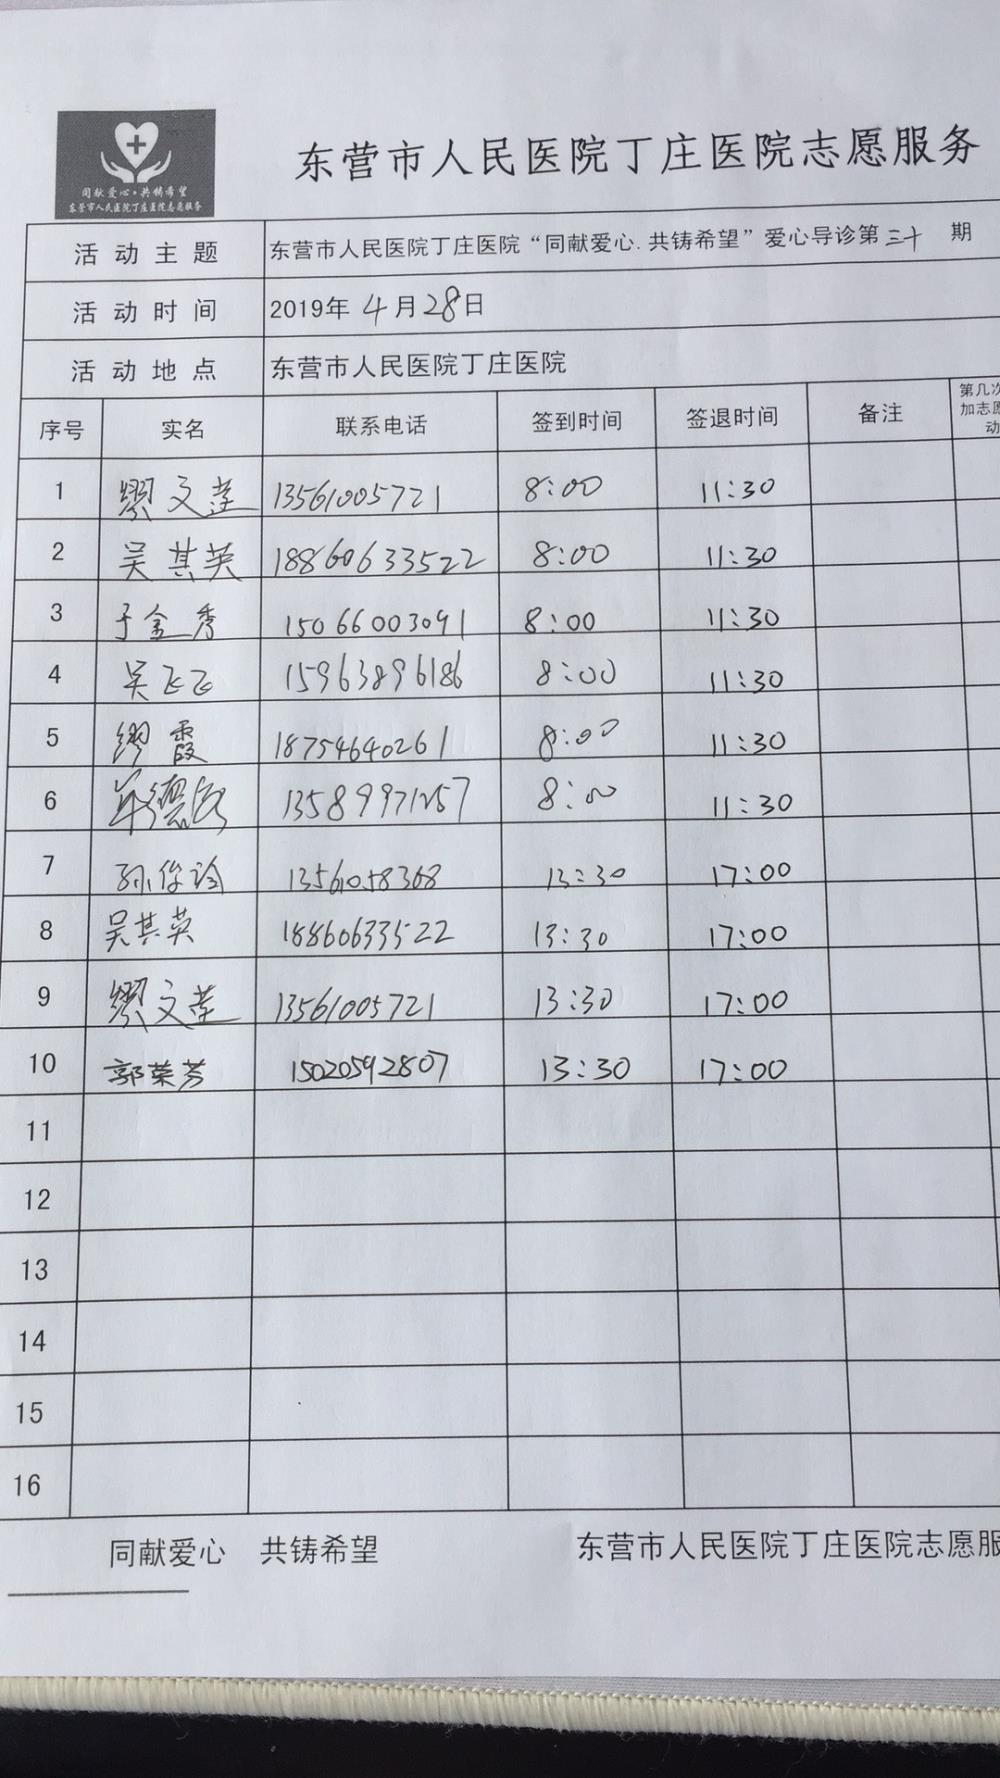 同献爱心·共铸希望
东营市人民医院丁庄医院志愿服务
东营市人民医院丁庄医院志愿服务
活动主题 东营市人民医院丁庄医院“同献爱心.共铸希望”爱心导诊第 三十 期
活动时间 2019年 4 月 28 日
活动地点 东营市人民医院丁庄医院
序号 实名 联系电话 签到时间 签退时间 备注 第几次
加志愿
动
1 缪文莲 13561005721 8:00 11:30
2 吴其英 18860633522 8:00 11:30
3 于金秀 15066003091 8:00 11:30
4 吴飞飞 15963896186 8:00 11:30
5 缪霞 18754640261 8:00 11:30
6 8:00 11:30
7 孙俊玲 13:30 17:00
8 吴其英 18860633522 13:30 17:00
9 缪文莲 13561005721 13:30 17:00
10 郭荣芳 15020592807 13:30 17:00
11
12
13
14
15
16
同献爱心 共铸希望 东营市人民医院丁庄医院志愿服